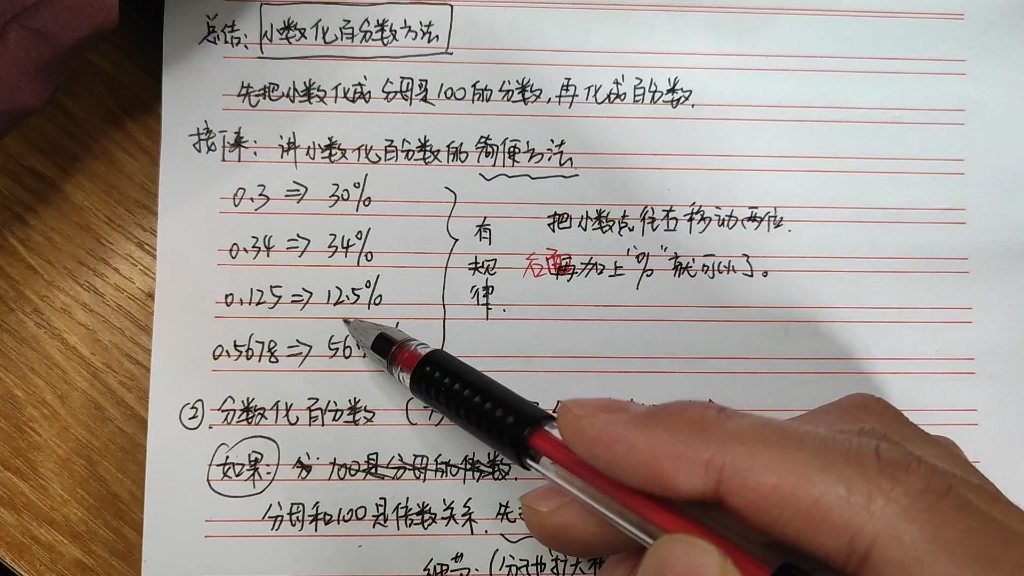 总结: 小数化百分数方法
先把小数化成分母是100的分数,再化成百分数.
接下来: 讲小数化百分数的简便方法
0.3 ⇒ 30%
0.34 ⇒ 34%
0.125 ⇒ 12.5%
0.5678 ⇒ 56
有规律.
把小数点往右移动两位.
后面加上"%"就可以了。
② 分数化百分数 (分
如果: 分 100是分母的倍数.
分母和100是倍数关系. 先
细节: (分子也扩大相